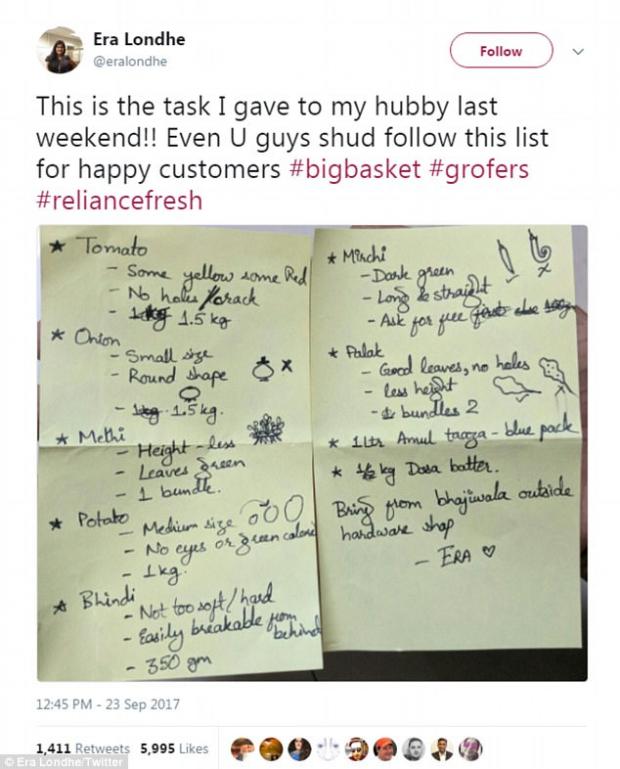 Era Londhe
@eralondhe
Follow
This is the task I gave to my hubby last
weekend!! Even U guys shud follow this list
for happy customers #bigbasket #grofers
#reliancefresh
★ Tomato
- Some yellow some Red
- No holes/crack
- 1kg 1.5 kg
★ Onion
- Small size
- Round shape
- 1kg 1.5kg.
★ Methi
- Height - less
- Leaves green
- 1 bundle.
★ Potato
- Medium size
- No eyes or green color
- 1kg.
★ Bhindi
- Not too soft/hard
- Easily breakable from
behind
- 350 gm
★ Mirchi
- Dark green
- Long & straight
- Ask for free
★ Palak
- Good leaves, no holes
- less height
- bundles 2
★ 1Ltr Amul taaza - blue pack
★ 1/2 kg Dosa batter.
Bring from bhajiwala outside
hardware shop
- ERA ♡
12:45 PM - 23 Sep 2017
1,411 Retweets 5,995 Likes
© Era Londhe/Twitter